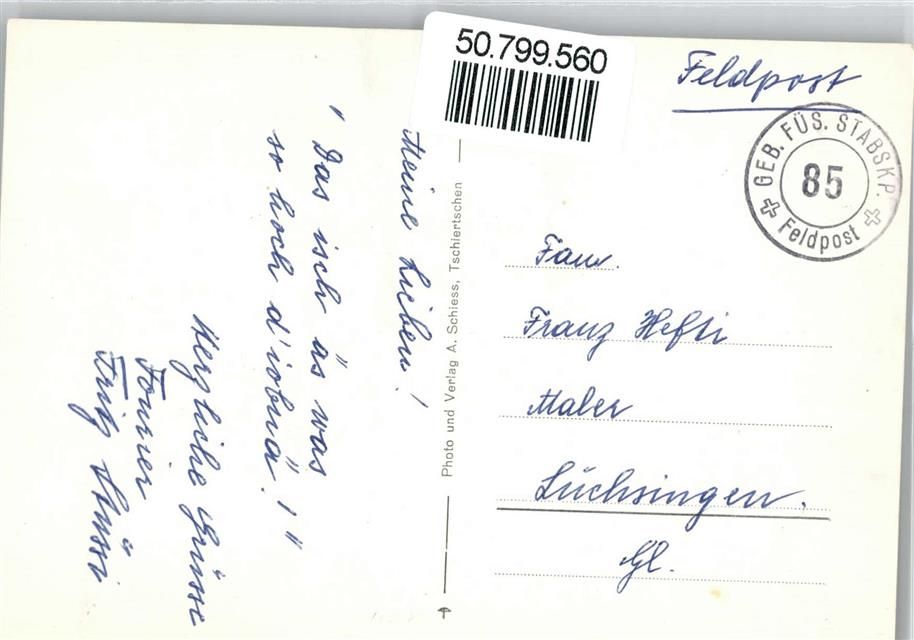 50.799.560
Feldpost
GEB. FÜS. STABSKP.
85
Feldpost
Meine Lieben!
" Das isch äs was
so hoch d'iobnä! "
Herzliche Grüsse
Fourier
Fritz
Photo und Verlag A. Schiess, Tschiertschen
Fam.
Franz Hefti
Maler
Lüchsingen.
Gl.